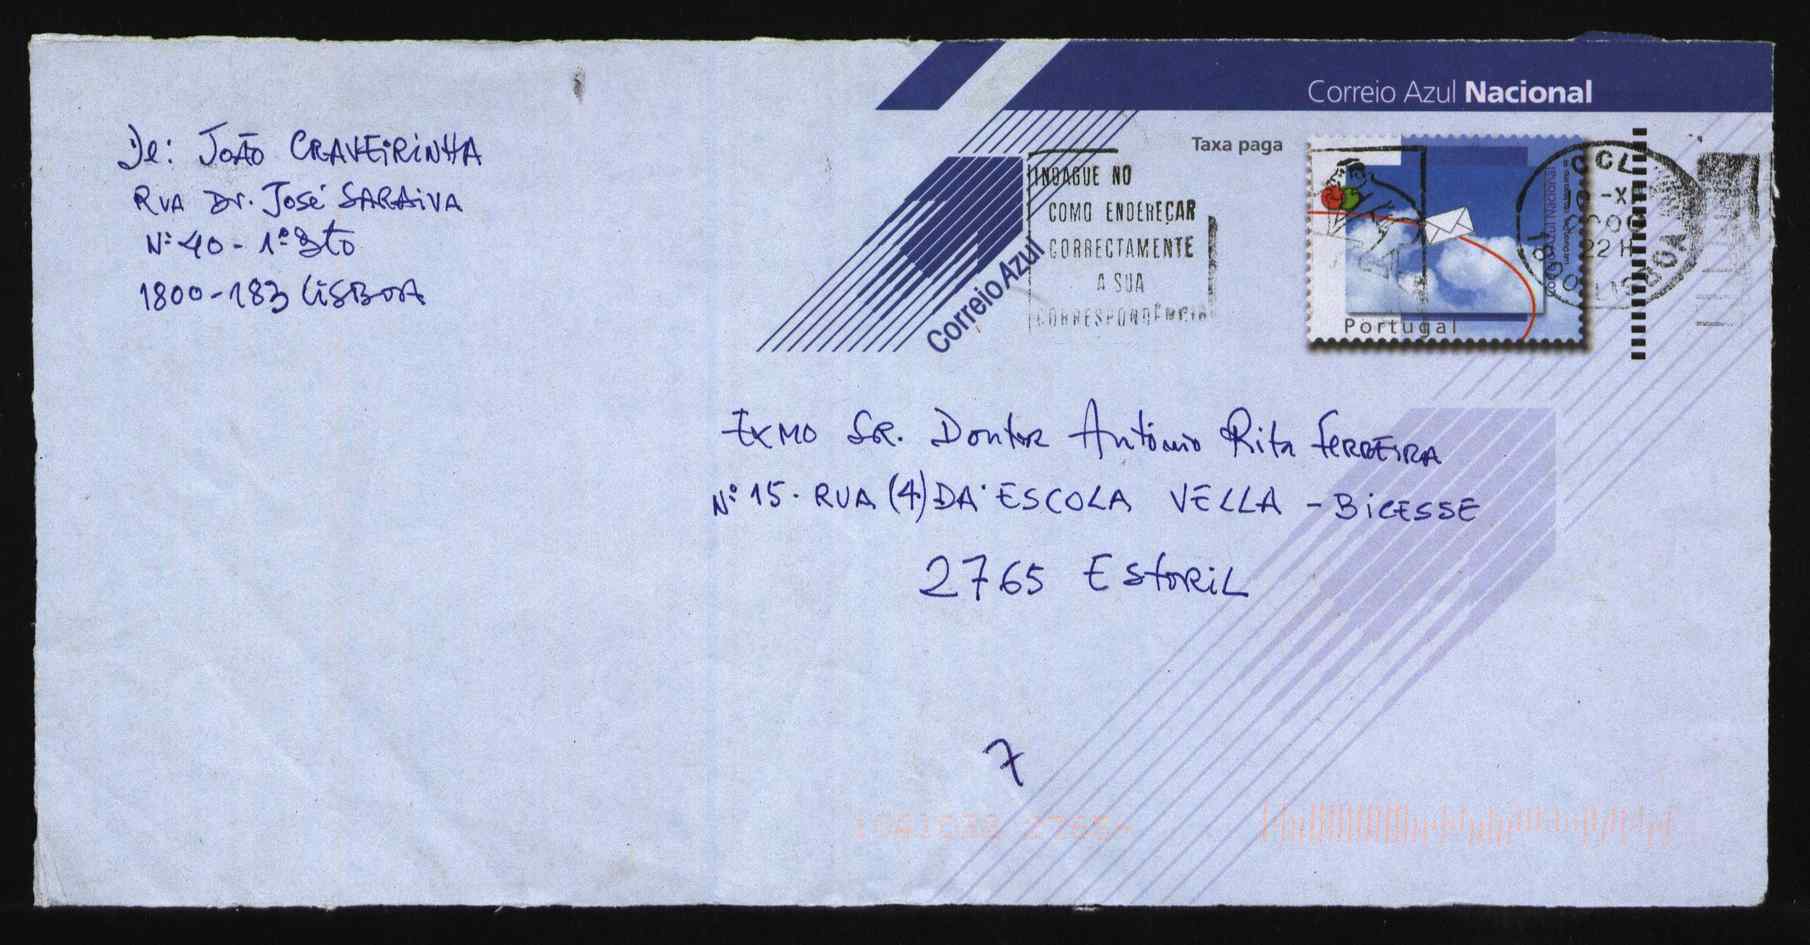 Correio Azul Nacional
De: João CRAVEIRINHA
RUA Dr. José SARAIVA
Nº 40 - 1º Dto
1800-183 LISBOA
Taxa paga
INDAGUE NO
COMO ENDEREÇAR
CORRECTAMENTE
A SUA
CORRESPONDÊNCIA
Correio Azul
CCL
22 H
LISBOA
Correio Azul Nacional
Portugal
EXMO SR. Doutor António Rita FERREIRA
Nº 15. RUA (4) DA ESCOLA VELLA - BICESSE
2765 EstoriL
7
2765